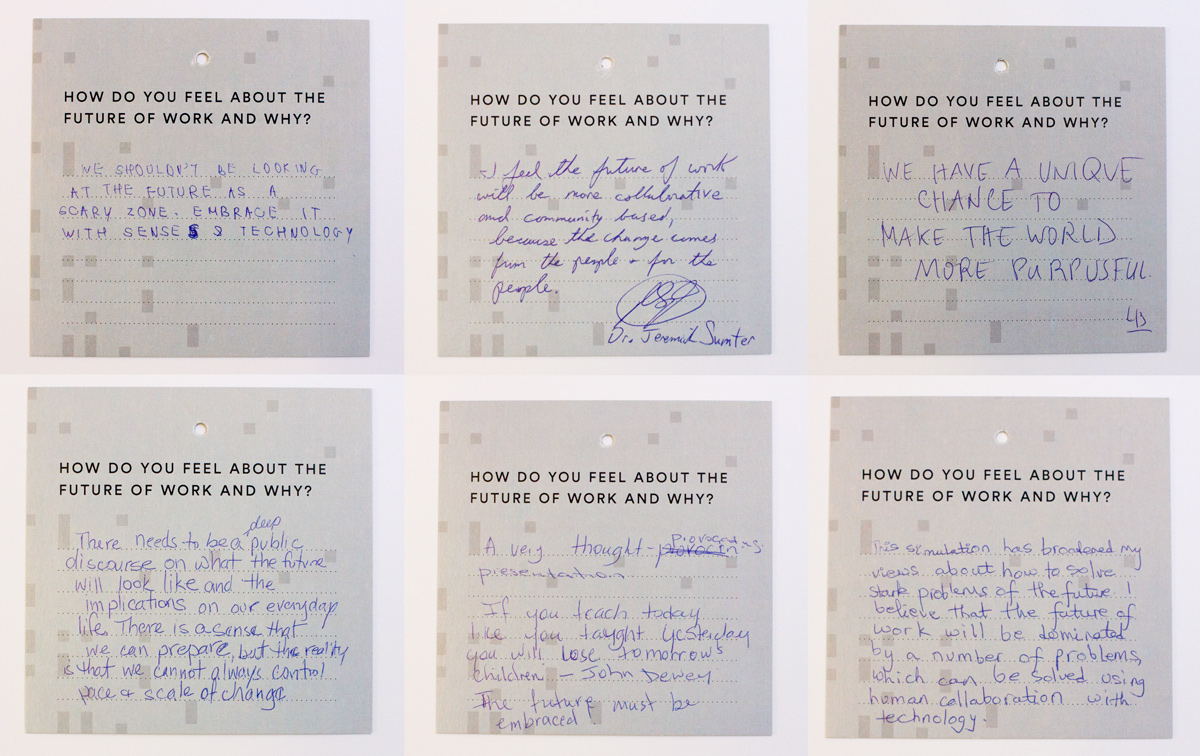 HOW DO YOU FEEL ABOUT THE
FUTURE OF WORK AND WHY?
WE SHOULDN'T BE LOOKING
AT THE FUTURE AS A
SCARY ZONE. EMBRACE IT
WITH SENSES & TECHNOLOGY
HOW DO YOU FEEL ABOUT THE
FUTURE OF WORK AND WHY?
I feel the future of work
will be more collaborative
and community based,
because the change comes
from the people + for the
people.
Dr. Jeremiah Sumter
HOW DO YOU FEEL ABOUT THE
FUTURE OF WORK AND WHY?
WE HAVE A UNIQUE
CHANCE TO
MAKE THE WORLD
MORE PURPUSFUL.
HOW DO YOU FEEL ABOUT THE
FUTURE OF WORK AND WHY?
deep
There needs to be a public
discourse on what the future
will look like and the
implications on our everyday
life. There is a sense that
we can prepare, but the reality
is that we cannot always control
pace + scale of change
HOW DO YOU FEEL ABOUT THE
FUTURE OF WORK AND WHY?
A very thought-
presentation
If you teach today
like you taught yesterday
you will lose tomorrow's
children – John Dewey
The future must be
embraced
HOW DO YOU FEEL ABOUT THE
FUTURE OF WORK AND WHY?
This simulation has broadened my
views about how to solve
stark problems of the future. I
believe that the future of
work will be dominated
by a number of problems,
which can be solved using
human collaboration with
technology.